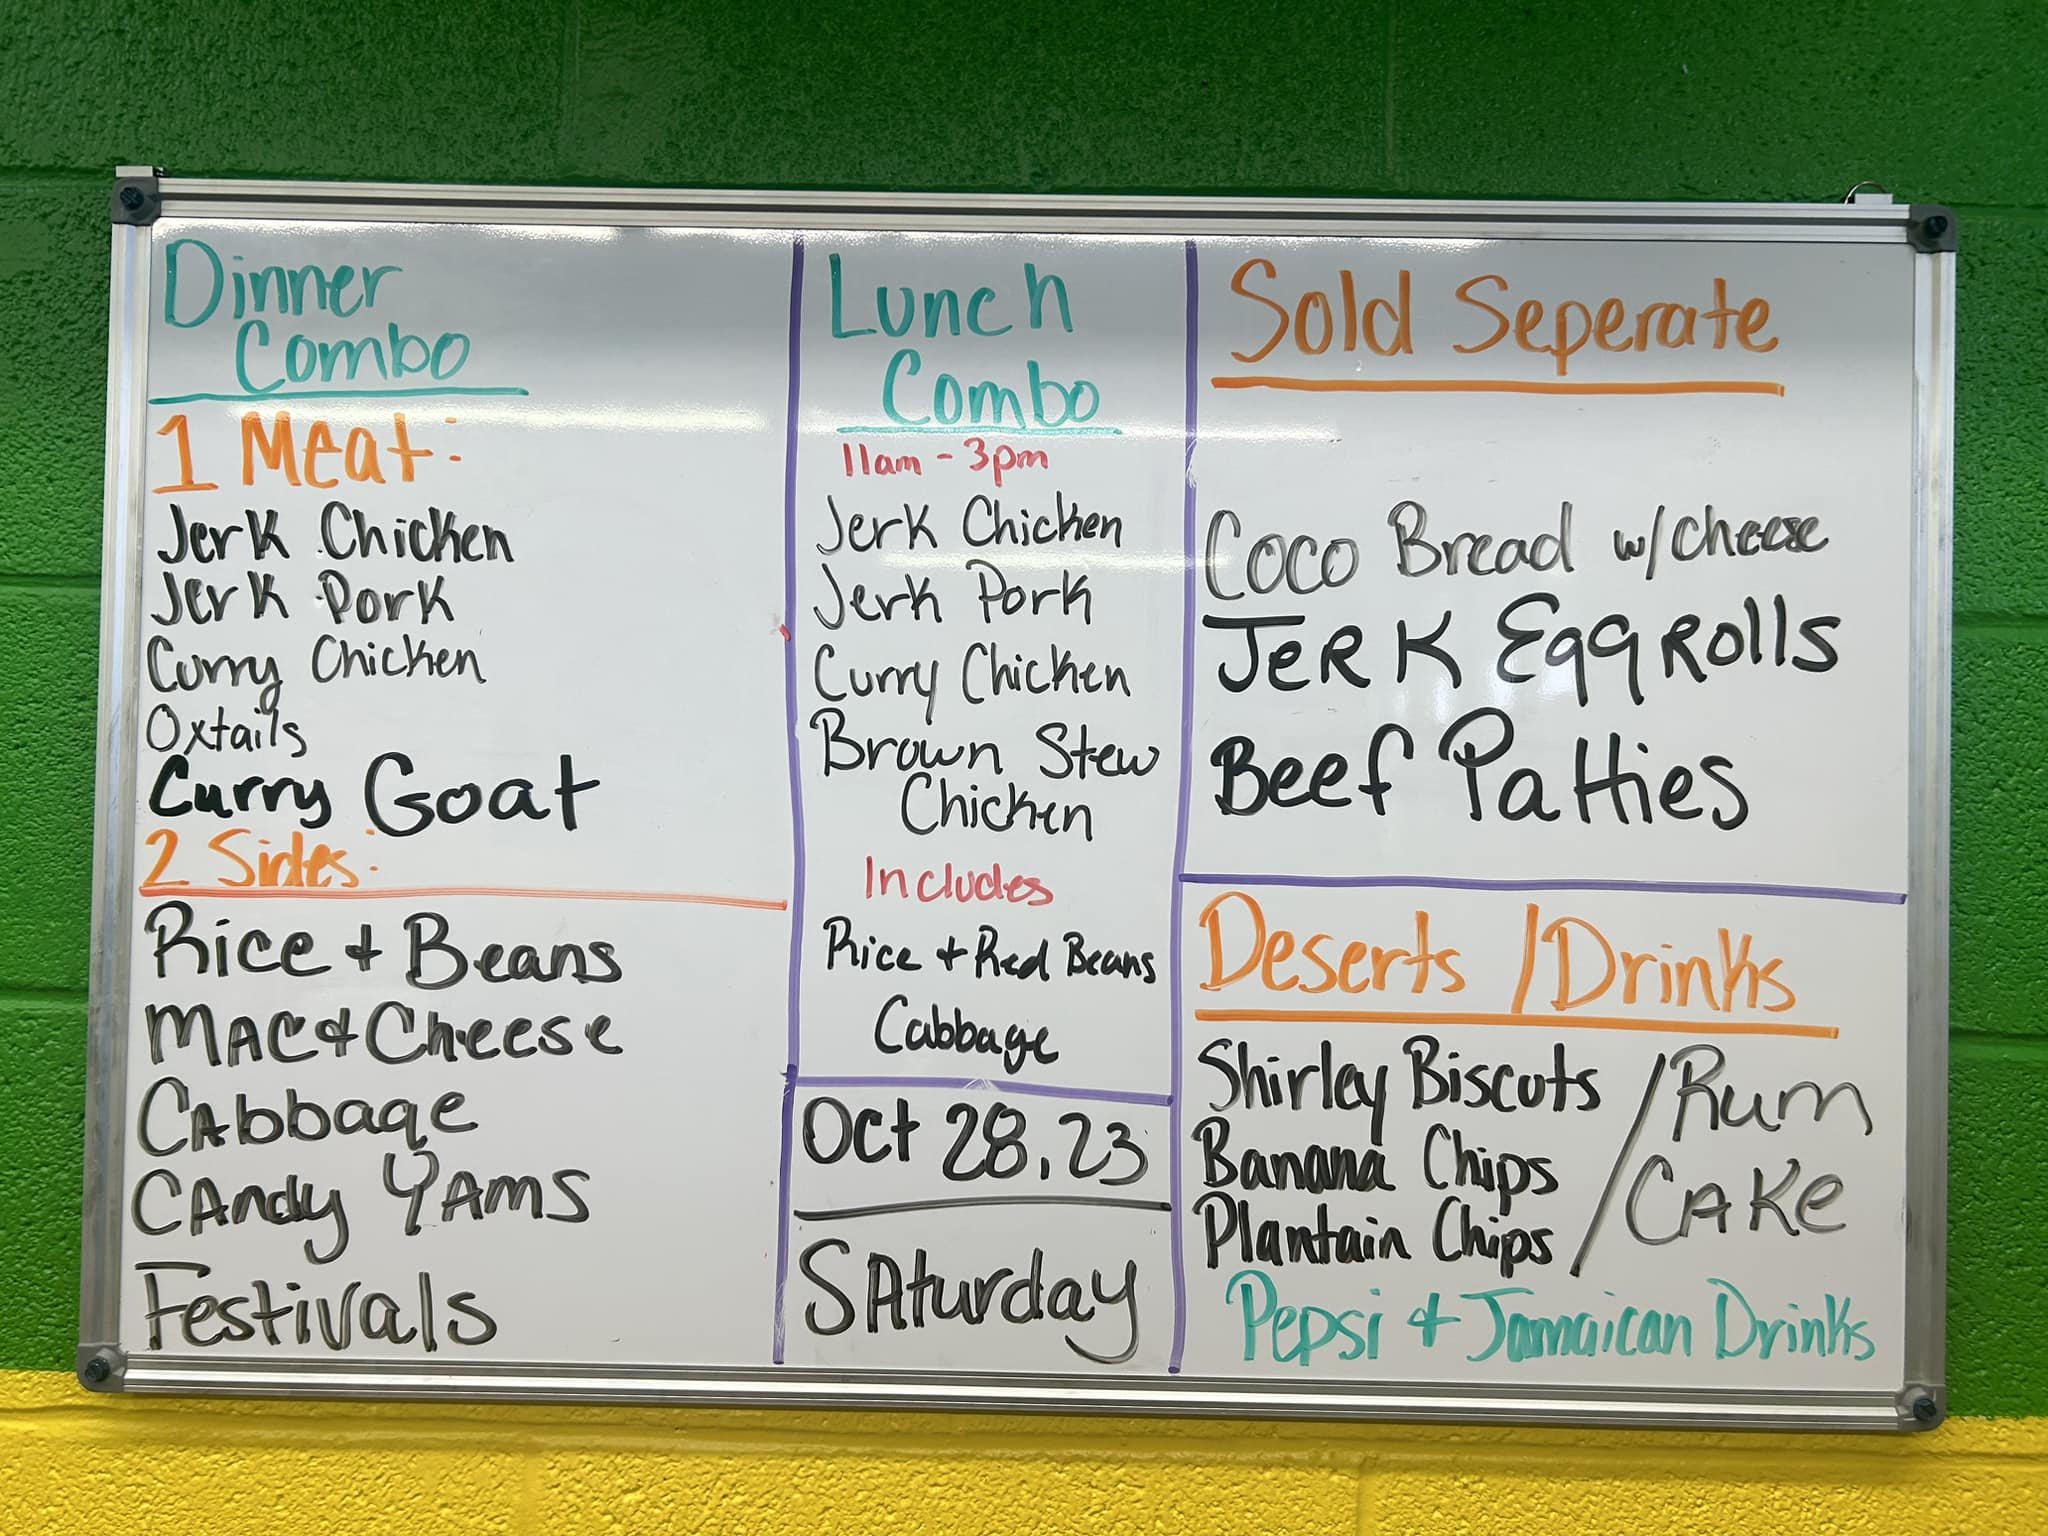 Dinner
Combo
1 Meat:
Jerk Chicken
Jerk Pork
Curry Chicken
Oxtails
Curry Goat
2 Sides:
Rice + Beans
MAC + Cheese
CAbbage
CAndy YAMS
Festivals
Lunch
Combo
11am - 3pm
Jerk Chicken
Jerk Pork
Curry Chicken
Brown Stew
Chicken
Includes
Rice + Red Beans
Cabbage
Oct 28, 23
SAturday
Sold Seperate
Coco Bread w/cheese
JeRK EggRolls
Beef Patties
Deserts / Drinks
Shirley Biscuts / Rum
Banana Chips CAKe
Plantain Chips
Pepsi + Jamaican Drinks